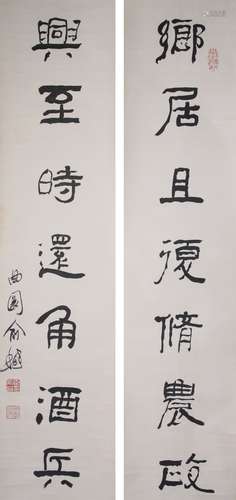 鄉居且復脩農政
興至時還角酒兵
曲園俞樾